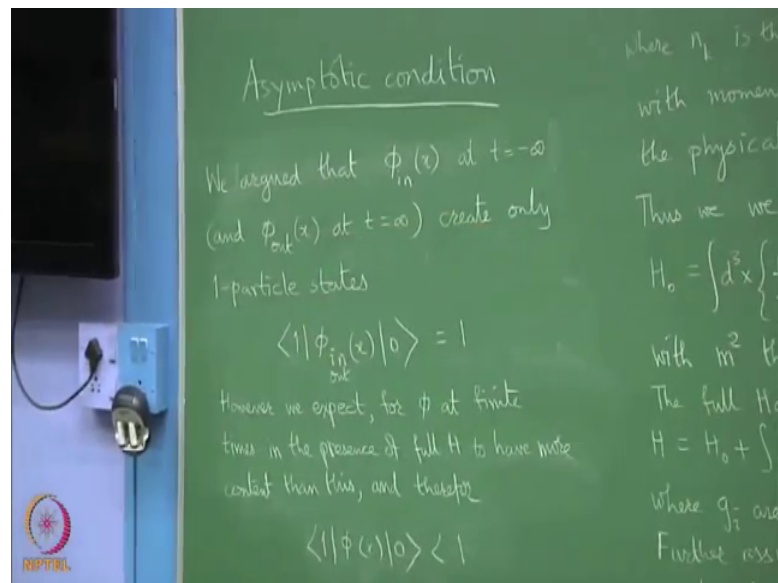 Asymptotic condition
We argued that ϕ_in(x) at t=-∞
(and ϕ_out(x) at t=∞) create only
1-particle states
⟨1|ϕ_in out(x)|0⟩ = 1
However we expect, for ϕ at finite
times in the presence of full H to have more
content than this, and therefor
⟨1|ϕ(x)|0⟩ < 1
where n_k is th
with momen
the physica
Thus we we
H₀ = ∫d³x {
with m² th
The full H
H = H₀ + ∫
where g_i are
Further ass
NPTEL